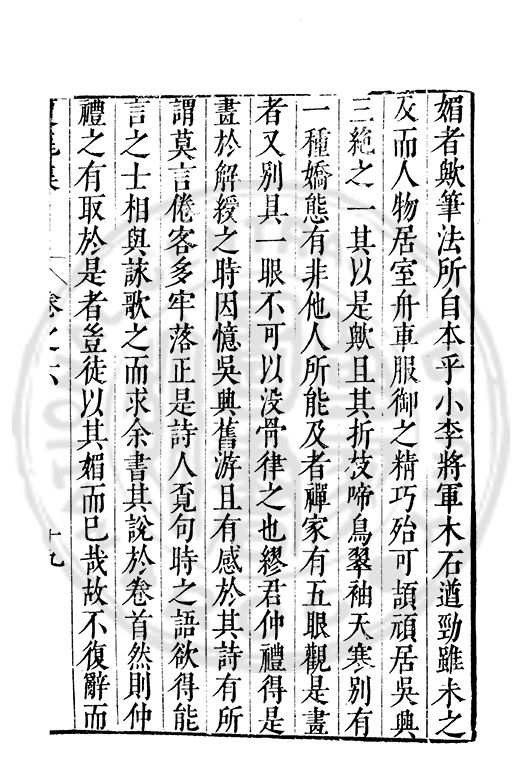 媚者歟筆法所自本乎小李將軍木石遒勁雖未之
及而人物居室舟車服御之精巧殆可頡頏居吳興
三絶之一其以是歟且其折枝啼鳥翠袖天寒别有
一種嬌態有非他人所能及者禪家有五眼觀是畫
者又别具一眼不可以没骨律之也繆君仲禮得是
畫於解綬之時因憶吳興舊游且有感於其詩有所
謂莫言倦客多牢落正是詩人覔句時之語欲得能
言之士相與詠歌之而求余書其說於卷首然則仲
禮之有取於是者豈徒以其媚而已哉故不復辭而
集 卷之六 十九